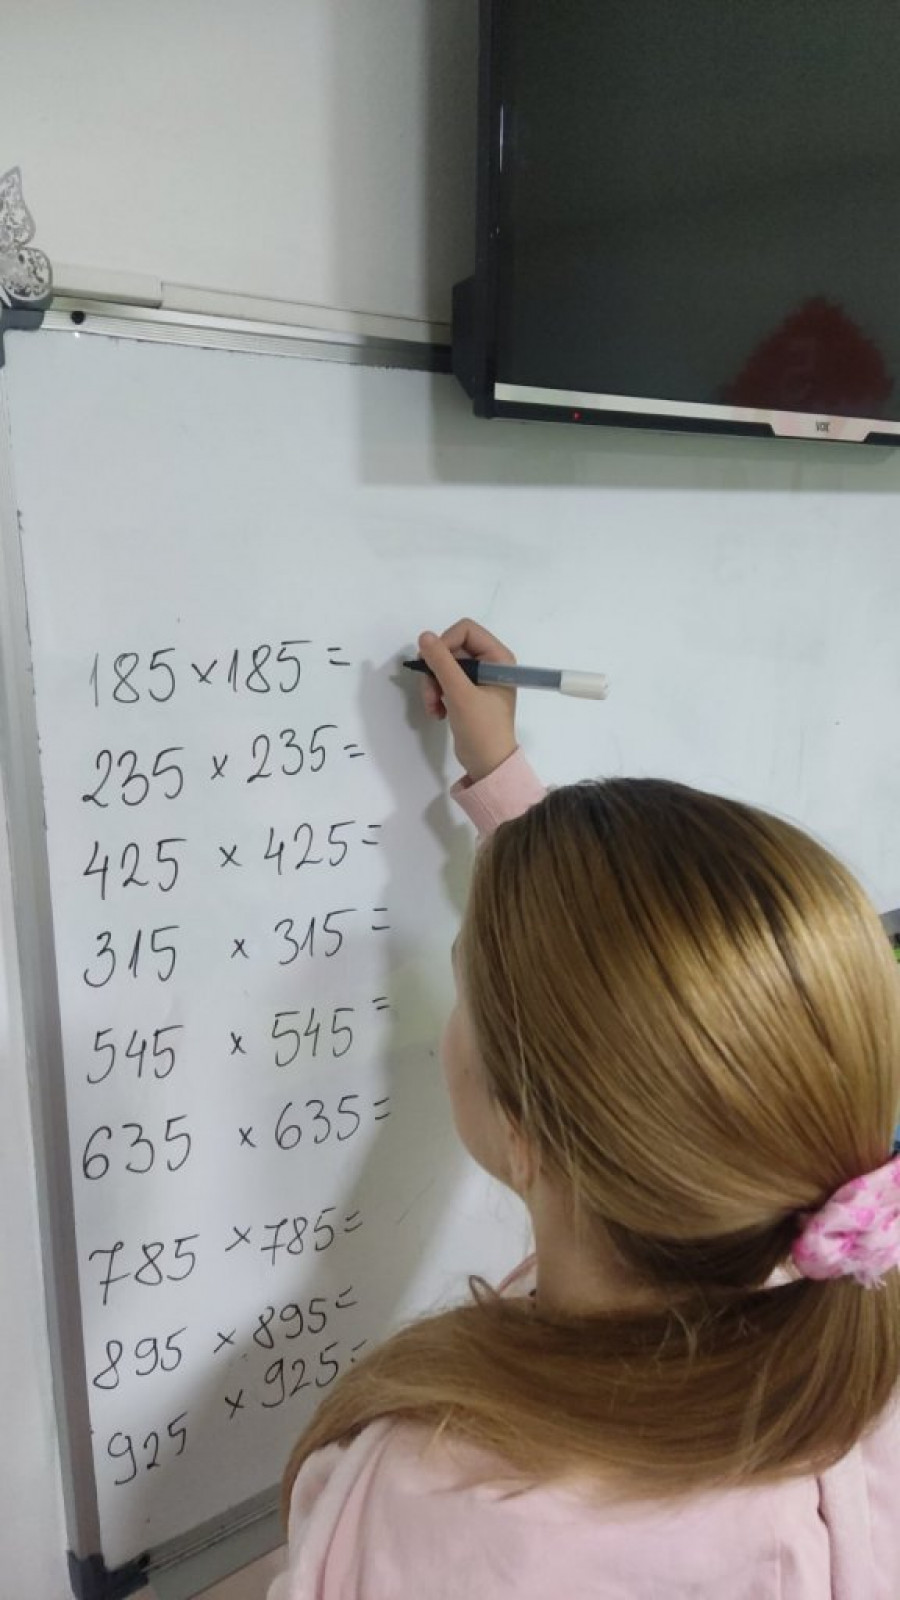 VOX
185 × 185 =
235 × 235 =
425 × 425 =
315 × 315 =
545 × 545 =
635 × 635 =
785 × 785 =
895 × 895 =
925 × 925 =